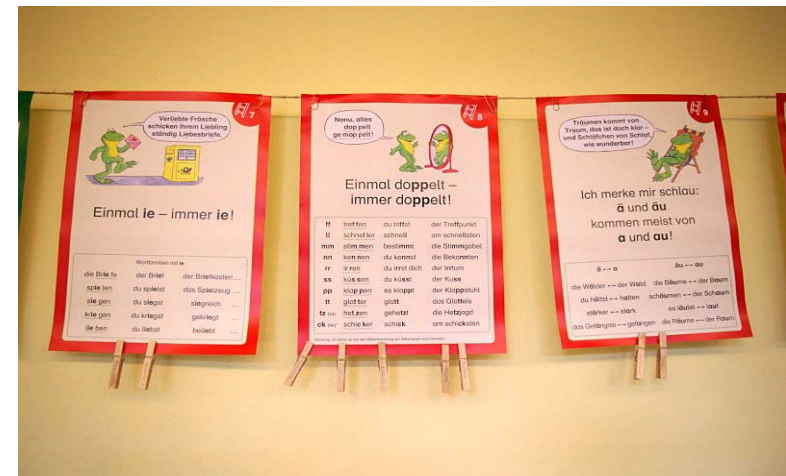 7
Verliebte Frösche
schicken ihrem Liebling
ständig Liebesbriefe.
Einmal ie – immer ie!
Wortfamilien mit ie
die Brie fe der Brief der Briefkasten ...
spie len du spielst das Spielzeug ...
sie gen du siegst siegreich ...
krie gen du kriegst gekriegt ...
lie ben du liebst beliebt ...
8
Nanu, alles
dop pelt
ge mop pelt!
Einmal doppelt –
immer doppelt!
ff tref fen du triffst der Treffpunkt
ll schnel ler schnell am schnellsten
mm stim men bestimmt die Stimmgabel
nn ken nen du kennst die Bekannten
rr ir ren du irrst dich der Irrtum
ss küs sen du küsst der Kuss
pp klop pen es kloppt der Kloppstuhl
tt glat ter glatt das Glatteis
tz het zen gehetzt die Hetzjagd
ck schic ker schick am schicksten
9
Träumen kommt von
Traum, das ist doch klar –
und Schläfchen von Schlaf,
wie wunderbar!
Ich merke mir schlau:
ä und äu
kommen meist von
a und au!
ä ↔ a äu ↔ au
die Wälder ↔ der Wald die Bäume ↔ der Baum
du hältst ↔ halten schäumen ↔ der Schaum
stärker ↔ stark es läutet ↔ laut
das Gefängnis ↔ gefangen die Räume ↔ der Raum